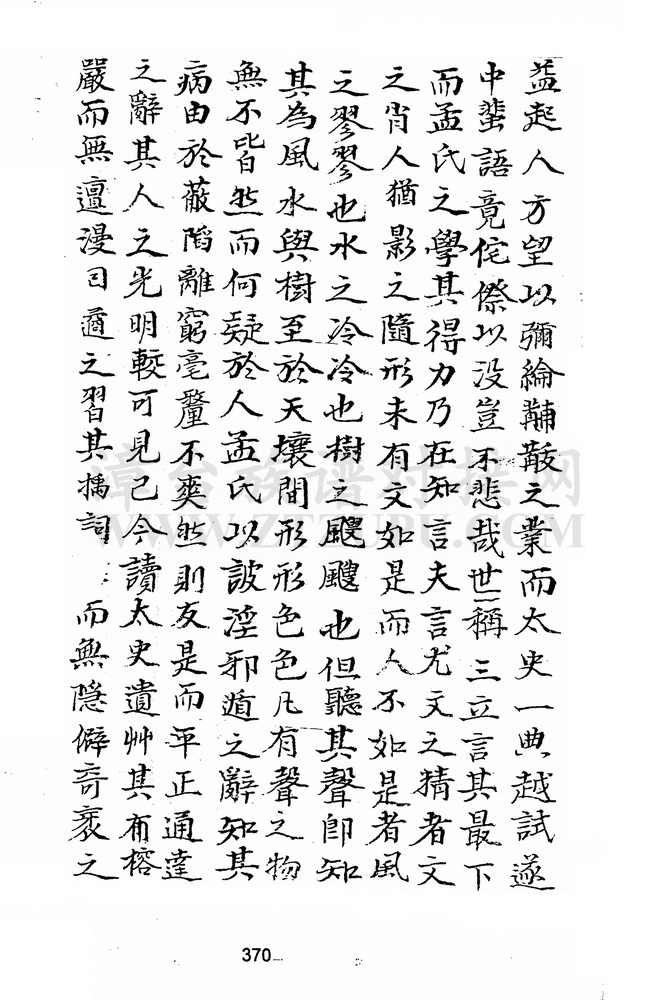 益起人方望以彌綸黼黻之業而太史一典越試遂
中蜚語竟侘傺以没豈不悲哉世稱三立言其最下
而孟氏之學其得力乃在知言夫言尤文之精者文
之肖人猶影之隨形未有文如是而人不如是者風
之翏翏也水之泠泠也樹之颼颼也但聽其聲即知
其為風水與樹至於天壤間形形色色凡有聲之物
無不皆然而何疑於人孟氏以詖淫邪遁之辭知其
病由於蔽陷離窮毫釐不爽然則友是而平正通達
之辭其人之光明較可見已今讀太史遺艸其布格
嚴而無邅漫
之習其摛詞
而無隱僻奇袤之
漳台族谱对接网
WWW.ZTZUPU.COM
370